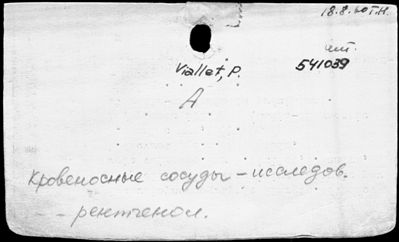 18.8.60 Г.Н.
ат.
Viallet, P. 541039
A
Кровеносные сосуды - исследов.
- рентгенол.